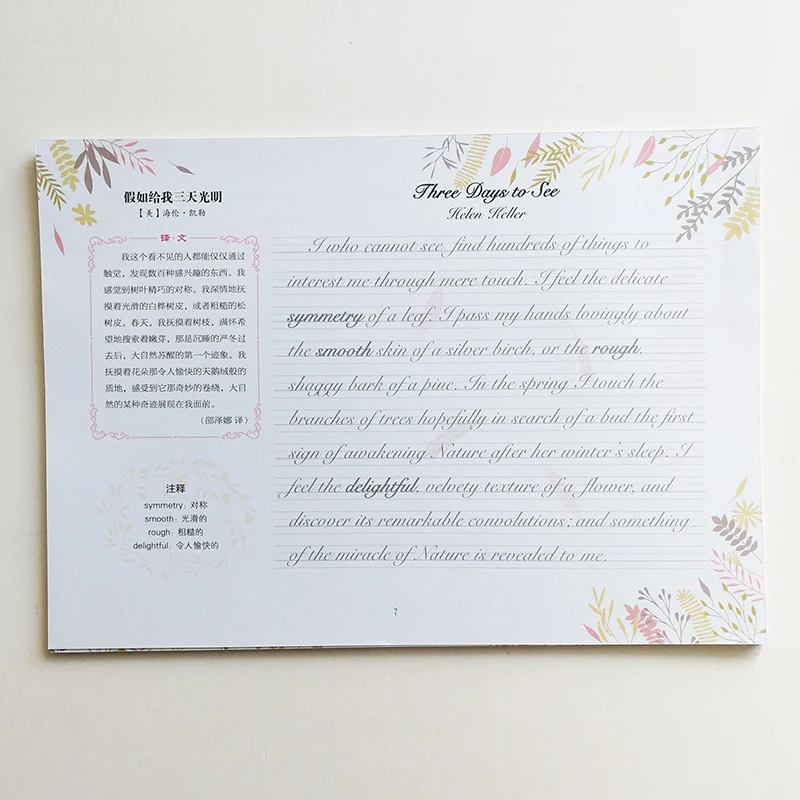 假如给我三天光明
【美】海伦·凯勒
译·文
我这个看不见的人都能仅仅通过
触觉,发现数百种感兴趣的东西。我
感觉到树叶精巧的对称。我深情地抚
摸着光滑的白桦树皮,或者粗糙的松
树皮。春天,我抚摸着树枝,满怀希
望地搜索着嫩芽,那是沉睡的严冬过
去后,大自然苏醒的第一个迹象。我
抚摸着花朵那令人愉快的天鹅绒般的
质地,感受到它那奇妙的卷绕,大自
然的某种奇迹展现在我面前。
(邵泽娜 译)
注释
symmetry: 对称
smooth: 光滑的
rough: 粗糙的
delightful: 令人愉快的
Three Days to See
Helen Keller
I who cannot see find hundreds of things to
interest me through mere touch. I feel the delicate
symmetry of a leaf. I pass my hands lovingly about
the smooth skin of a silver birch, or the rough,
shaggy bark of a pine. In the spring I touch the
branches of trees hopefully in search of a bud the first
sign of awakening Nature after her winter's sleep. I
feel the delightful, velvety texture of a flower, and
discover its remarkable convolutions; and something
of the miracle of Nature is revealed to me.
7